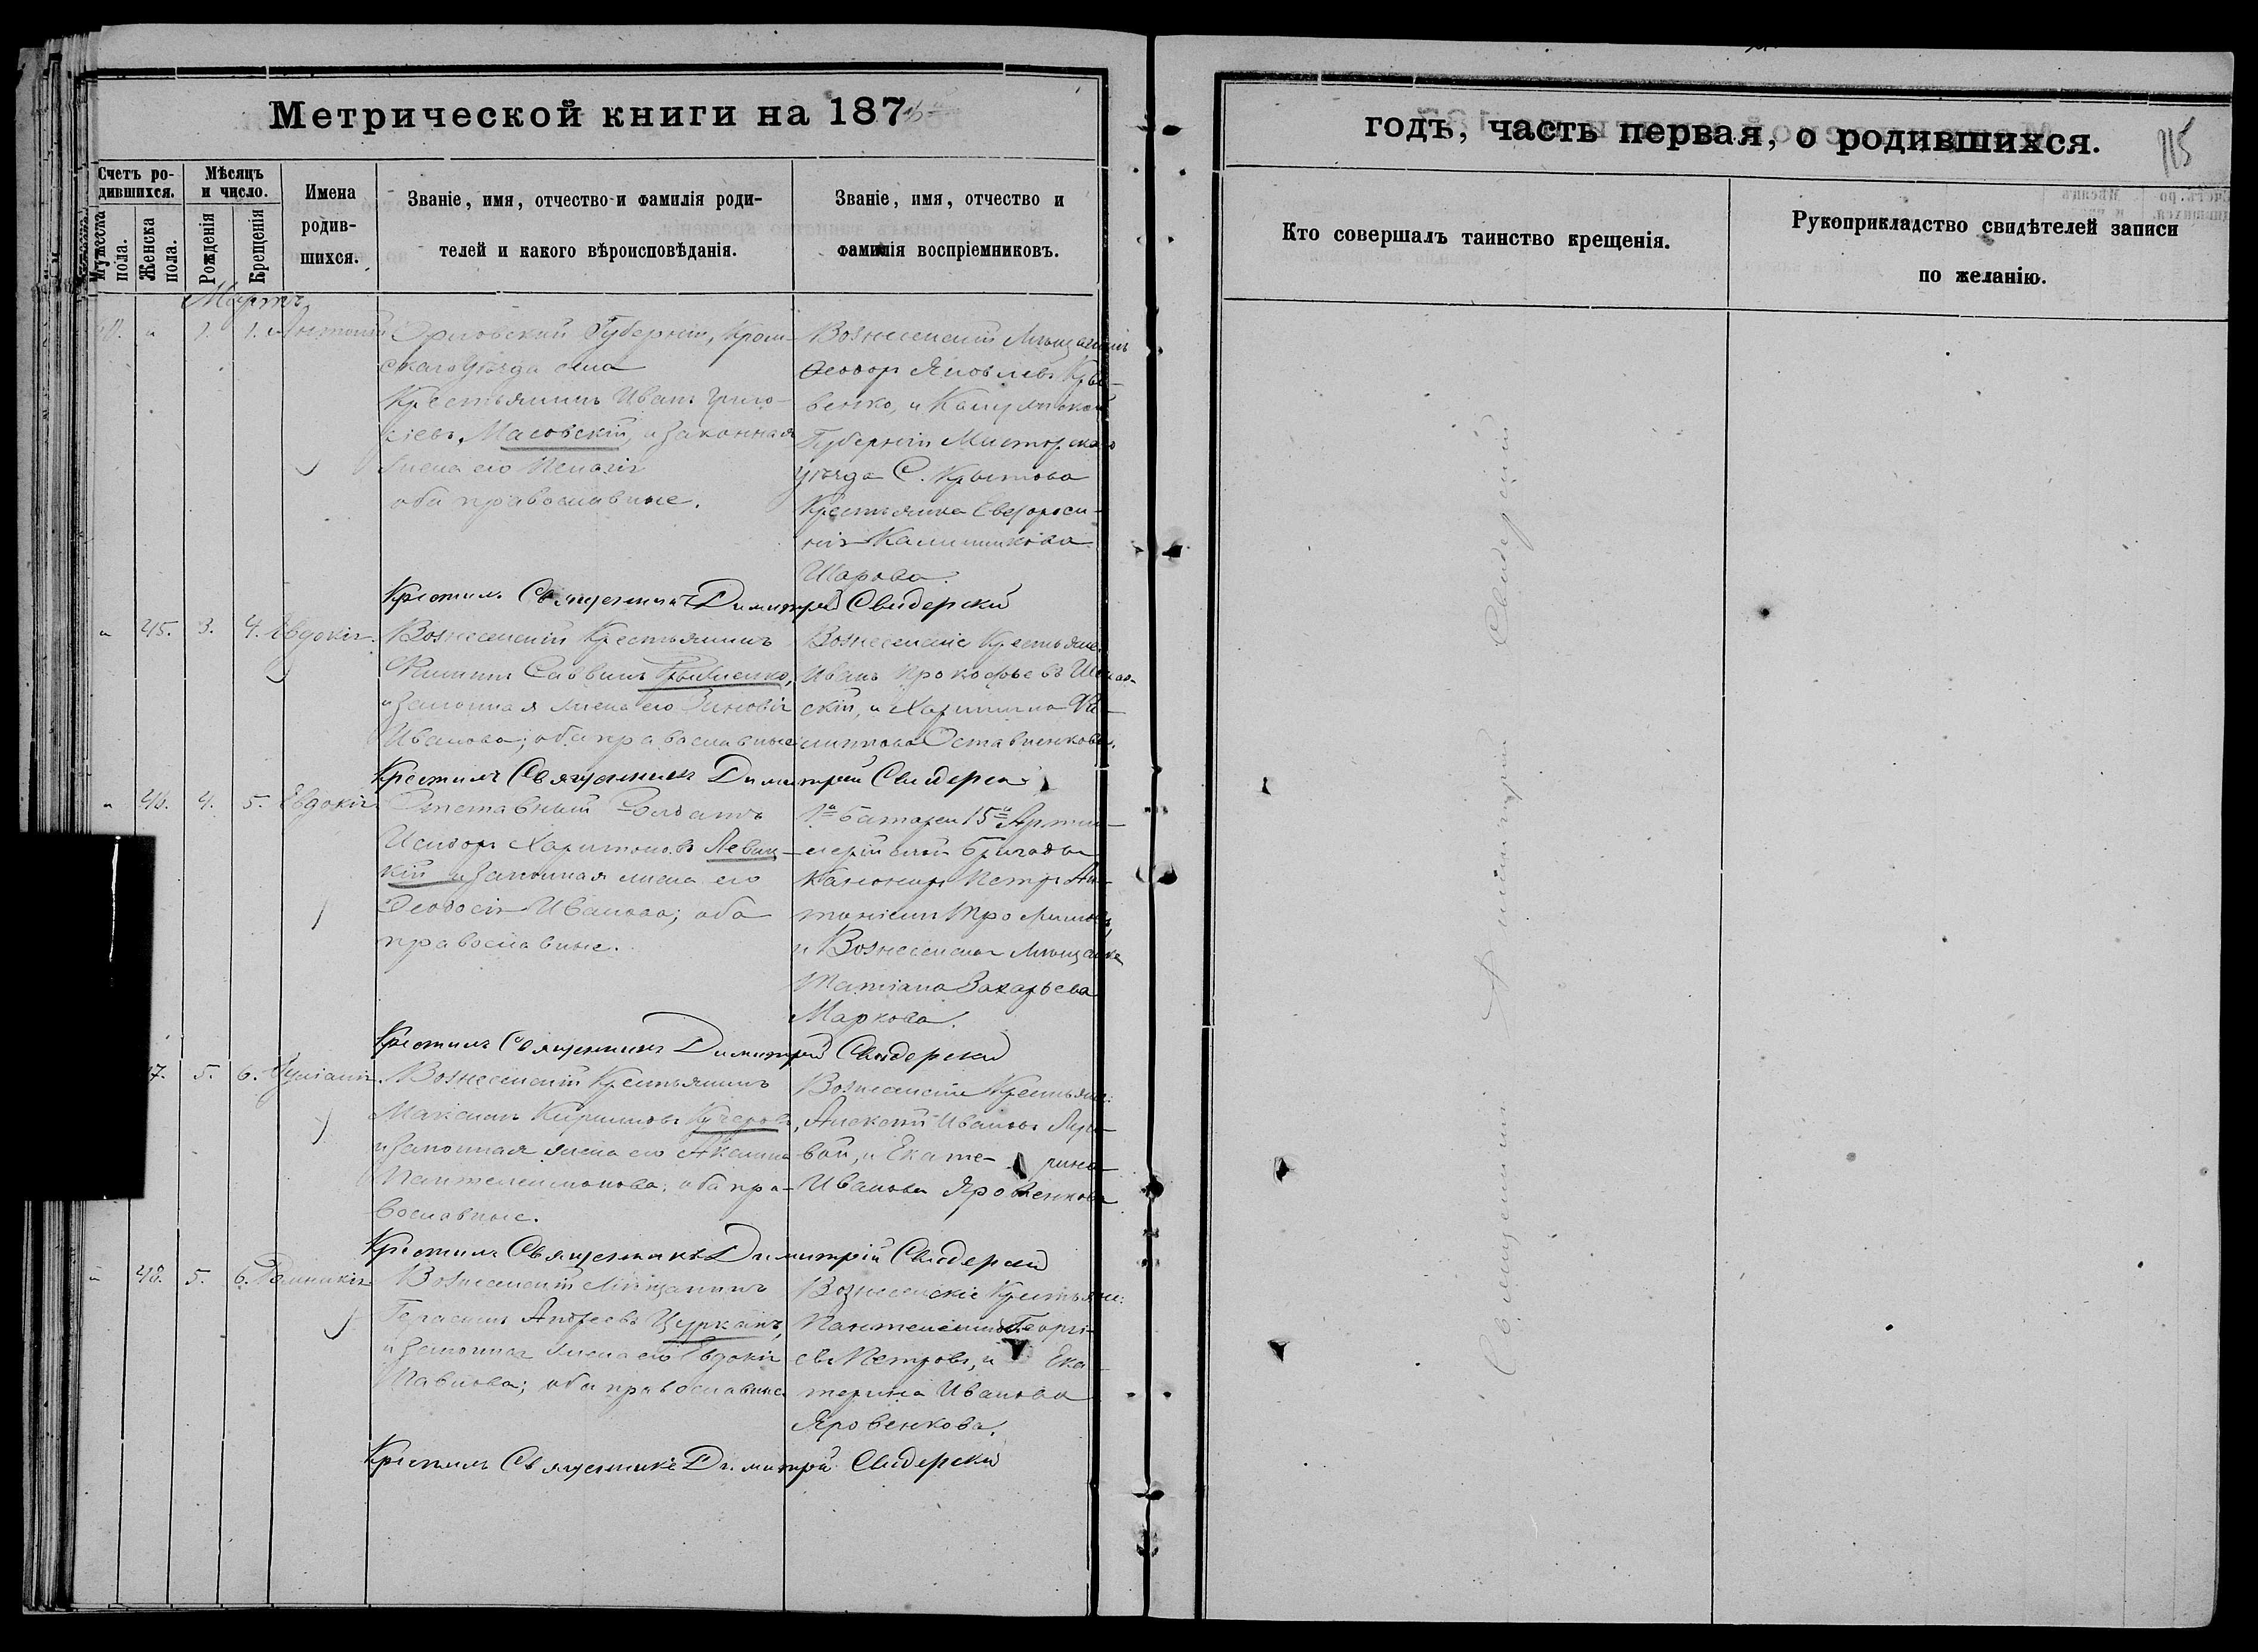 Метрической книги на 187
годъ, часть первая, о родившихся.
115
Счетъ ро-
дившихся.
Мужеска
пола.
Женска
пола.
Мѣсяцъ
и число.
Рожденія
Крещенія
Имена
родив-
шихся.
Званіе, имя, отчество и фамилія роди-
телей и какого вѣроисповѣданія.
Званіе, имя, отчество и
фамилія воспріемниковъ.
Кто совершалъ таинство крещенія.
Рукоприкладство свидѣтелей записи
по желанію.
Мартъ
1. 1.
Орловской Губерніи, Кром-
скаго Уѣзда села
Крестьянинъ Иванъ Григо-
ріевъ Масовскій, и законная
жена его Пелагія
оба православные.
Вознесенскій Мѣщанинъ
Ѳеодоръ Яковлевъ
венко, и
Губерніи
уѣзда С.
Крестьянка Евфроси-
нія Калинникова
Шарова.
Крестилъ Священникъ Димитрій Свидерскій
45. 3. 4. Евдокія.
Вознесенскій Крестьянинъ
Филиппъ Саввинъ
и законная жена его Зиновія
Иванова; оба православные
Вознесенскіе Крестьяне:
Иванъ Прокофьевъ
скій, и Харитина Фи-
липпова Оставненкова.
Крестилъ Священникъ Димитрій Свидерскій
46. 4. 5. Евдокія
Отставный Солдатъ
Исидоръ Харитоновъ Левиц-
кій и законная жена его
Ѳеодосія Иванова; оба
православные.
1й батареи 15й Артил-
лерійской бригады
Канониръ Петръ Ан-
тоніевъ Трофимовъ,
и Вознесенская Мѣщанка
Татіана Захарьева
Маркова.
Крестилъ Священникъ Димитрій Свидерскій
47. 5. 6. Іуліанія.
Вознесенскій Крестьянинъ
Максимъ Кирилловъ Кучеровъ,
и законная жена его Акилина
Пантелеимонова; оба пра-
вославные.
Вознесенскіе Крестьяне:
Алексій Ивановъ
вой, и Екате- рина
Иванова Яровенкова
Крестилъ Священникъ Димитрій Свидерскій
48. 5. 6. Домникія
Вознесенскій Мѣщанинъ
Герасимъ Андреевъ Цурканъ,
и законная жена его Евдокія
Павлова; оба православные
Вознесенскіе Крестьяне:
Пантелеимонъ Георгі-
евъ Петровъ, и Ека-
терина Иванова
Яровенкова.
Крестилъ Священникъ Димитрій Свидерскій
Священникъ Димитрій Свидерскій